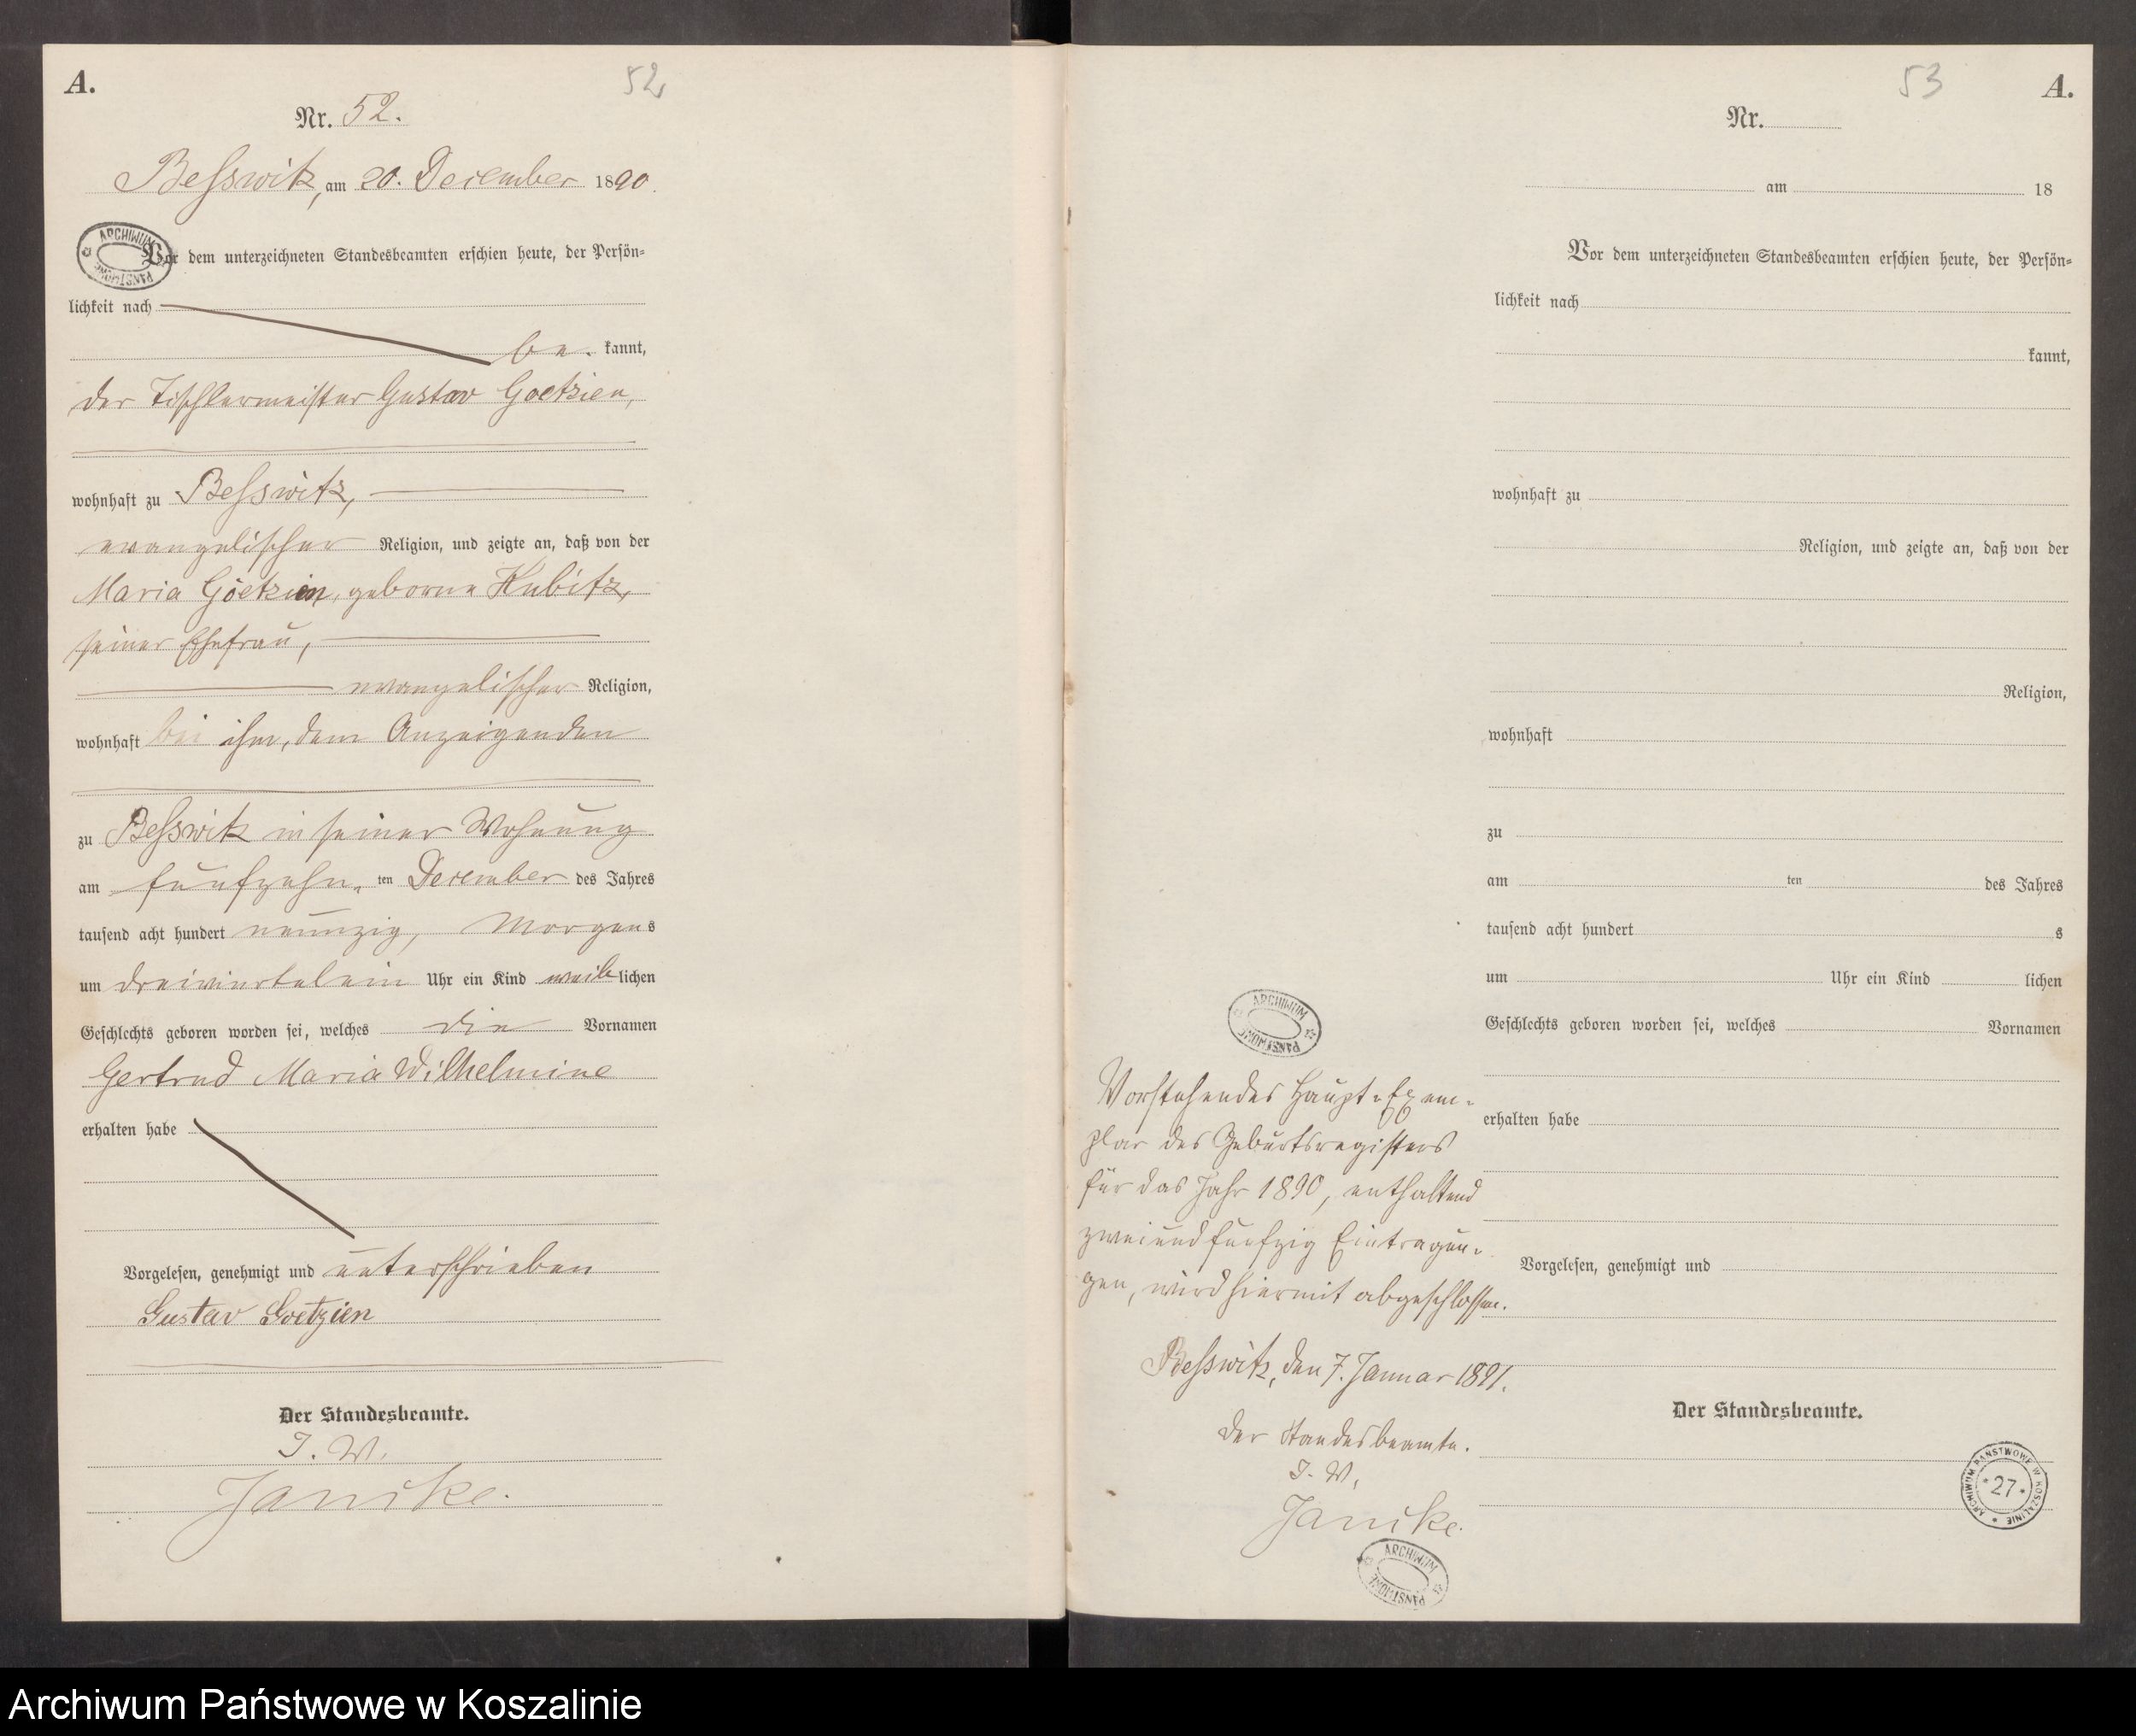 A.
52
Nr. 52.
Beßwitz, am 20. December 1890.
ARCHIWUM PAŃSTWOWE
Vor dem unterzeichneten Standesbeamten erschien heute, der Persön=
lichkeit nach
be. kannt,
der Tischlermeister Gustav Goetzien,
wohnhaft zu Beßwitz,
evangelischer Religion, und zeigte an, daß von der
Maria Goetzien, geborne Kubitz,
seiner Ehefrau,
evangelischer Religion,
wohnhaft bei ihm, dem Anzeigenden
zu Beßwitz in seiner Wohnung
am fünfzehn. ten December des Jahres
tausend acht hundert neunzig, Morgens
um dreiviertelein Uhr ein Kind weiblichen
Geschlechts geboren worden sei, welches die Vornamen
Gertrud Maria Wilhelmine
erhalten habe
Vorgelesen, genehmigt und unterschrieben
Gustav Goetzien
Der Standesbeamte.
J. V.
Janike.
53
A.
Nr.
am 18
Vor dem unterzeichneten Standesbeamten erschien heute, der Persön=
lichkeit nach
kannt,
wohnhaft zu
Religion, und zeigte an, daß von der
Religion,
wohnhaft
zu
am ten des Jahres
tausend acht hundert s
um Uhr ein Kind lichen
Geschlechts geboren worden sei, welches Vornamen
erhalten habe
Vorgelesen, genehmigt und
Der Standesbeamte.
ARCHIWUM PAŃSTWOWE W KOSZALINIE
*27*
ARCHIWUM PAŃSTWOWE
Vorstehendes Haupt-Exem-
plar des Geburtsregisters
für das Jahr 1890, enthaltend
zweiundfünfzig Eintragun-
gen, wird hiermit abgeschlossen.
Beßwitz, den 7. Januar 1891.
Der Standesbeamte.
J. V.
Janike.
ARCHIWUM PAŃSTWOWE
Archiwum Państwowe w Koszalinie